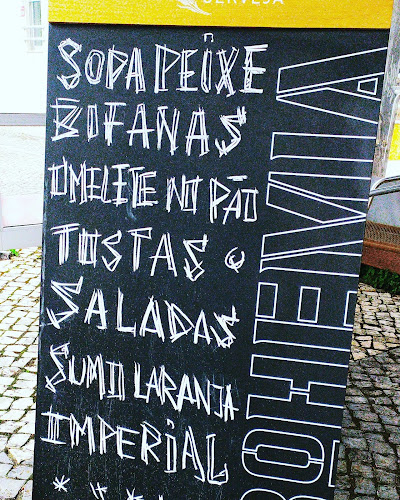 CERVEJA
SOPA PEIXE
BIFANAS
OMELETE NO PÃO
TOSTAS
SALADAS
SUMO LARANJA
IMPERIAL
BOHEMIA